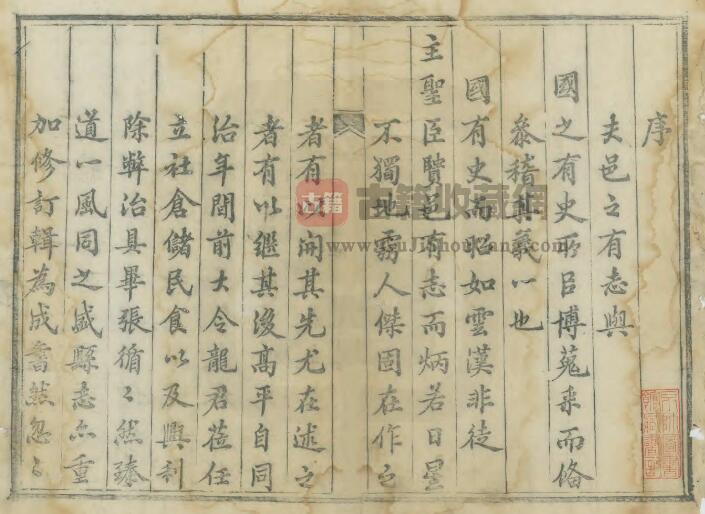 序
夫邑之有志與
國之有史所㠯博蒐采而俻
叅稽其義一也
國有史而昭如雲漢非徒
主聖臣賢邑有志而炳若日星
不獨地靈人傑固在作之
者有以開其先尤在述之
者有以繼其後髙平自同
治年間前大令龍君蒞任
立社倉儲民食以及興利
除弊治具畢張循〻然臻
道一風同之盛縣志亦重
加修訂輯為成書然忽〻
古籍 古籍收藏網
www.GuJiShouCang.com